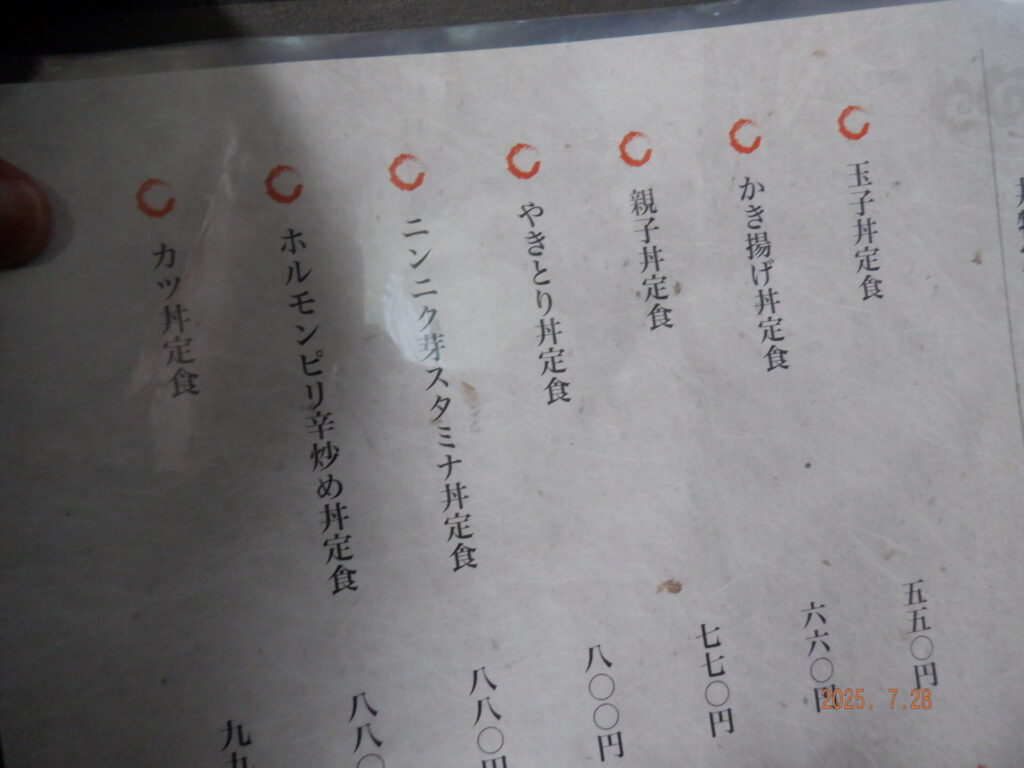 玉子丼定食 五五〇円
かき揚げ丼定食 六六〇円
親子丼定食 七七〇円
やきとり丼定食 八〇〇円
ニンニク芽スタミナ丼定食 八八〇円
ホルモンピリ辛炒め丼定食 八八〇
カツ丼定食 九九
2025. 7.28